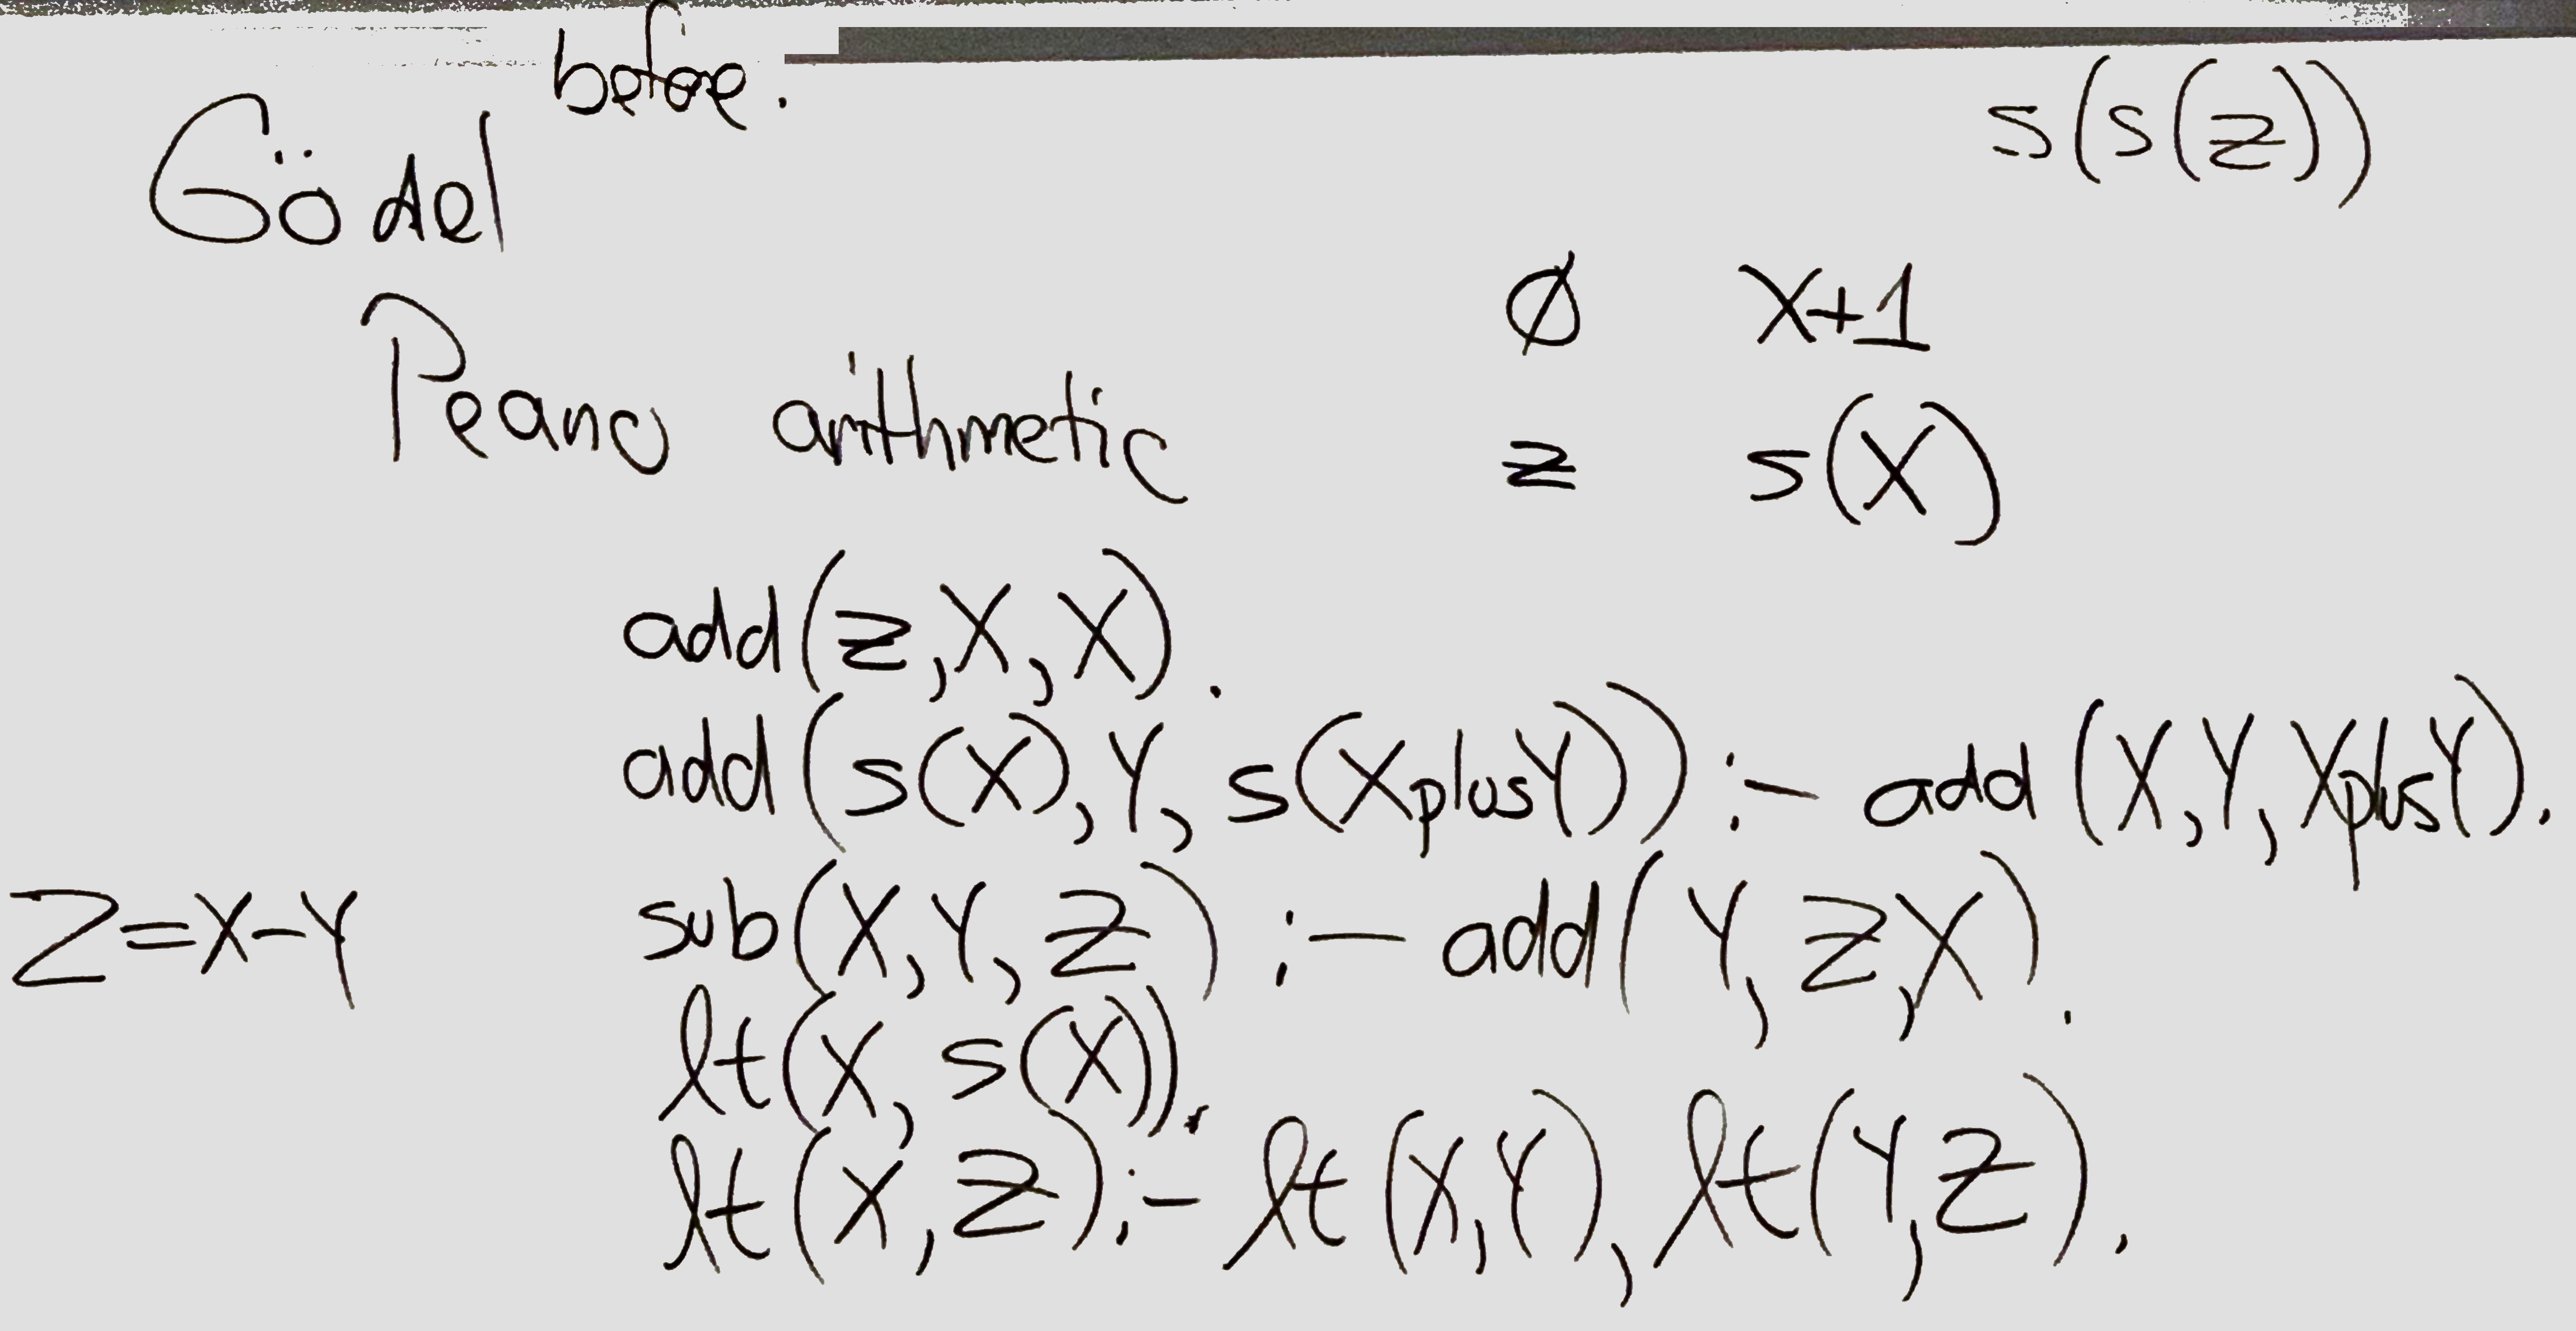 before.
s(s(z))
Gödel
∅ X+1
Peano arithmetic
z s(X)
add(z,X,X).
add(s(X),Y,s(XplusY)) :- add(X,Y,XplusY).
Z=X-Y sub(X,Y,Z) :- add(Y,Z,X).
lt(X,s(X)).
lt(X,Z) :- lt(X,Y), lt(Y,Z).